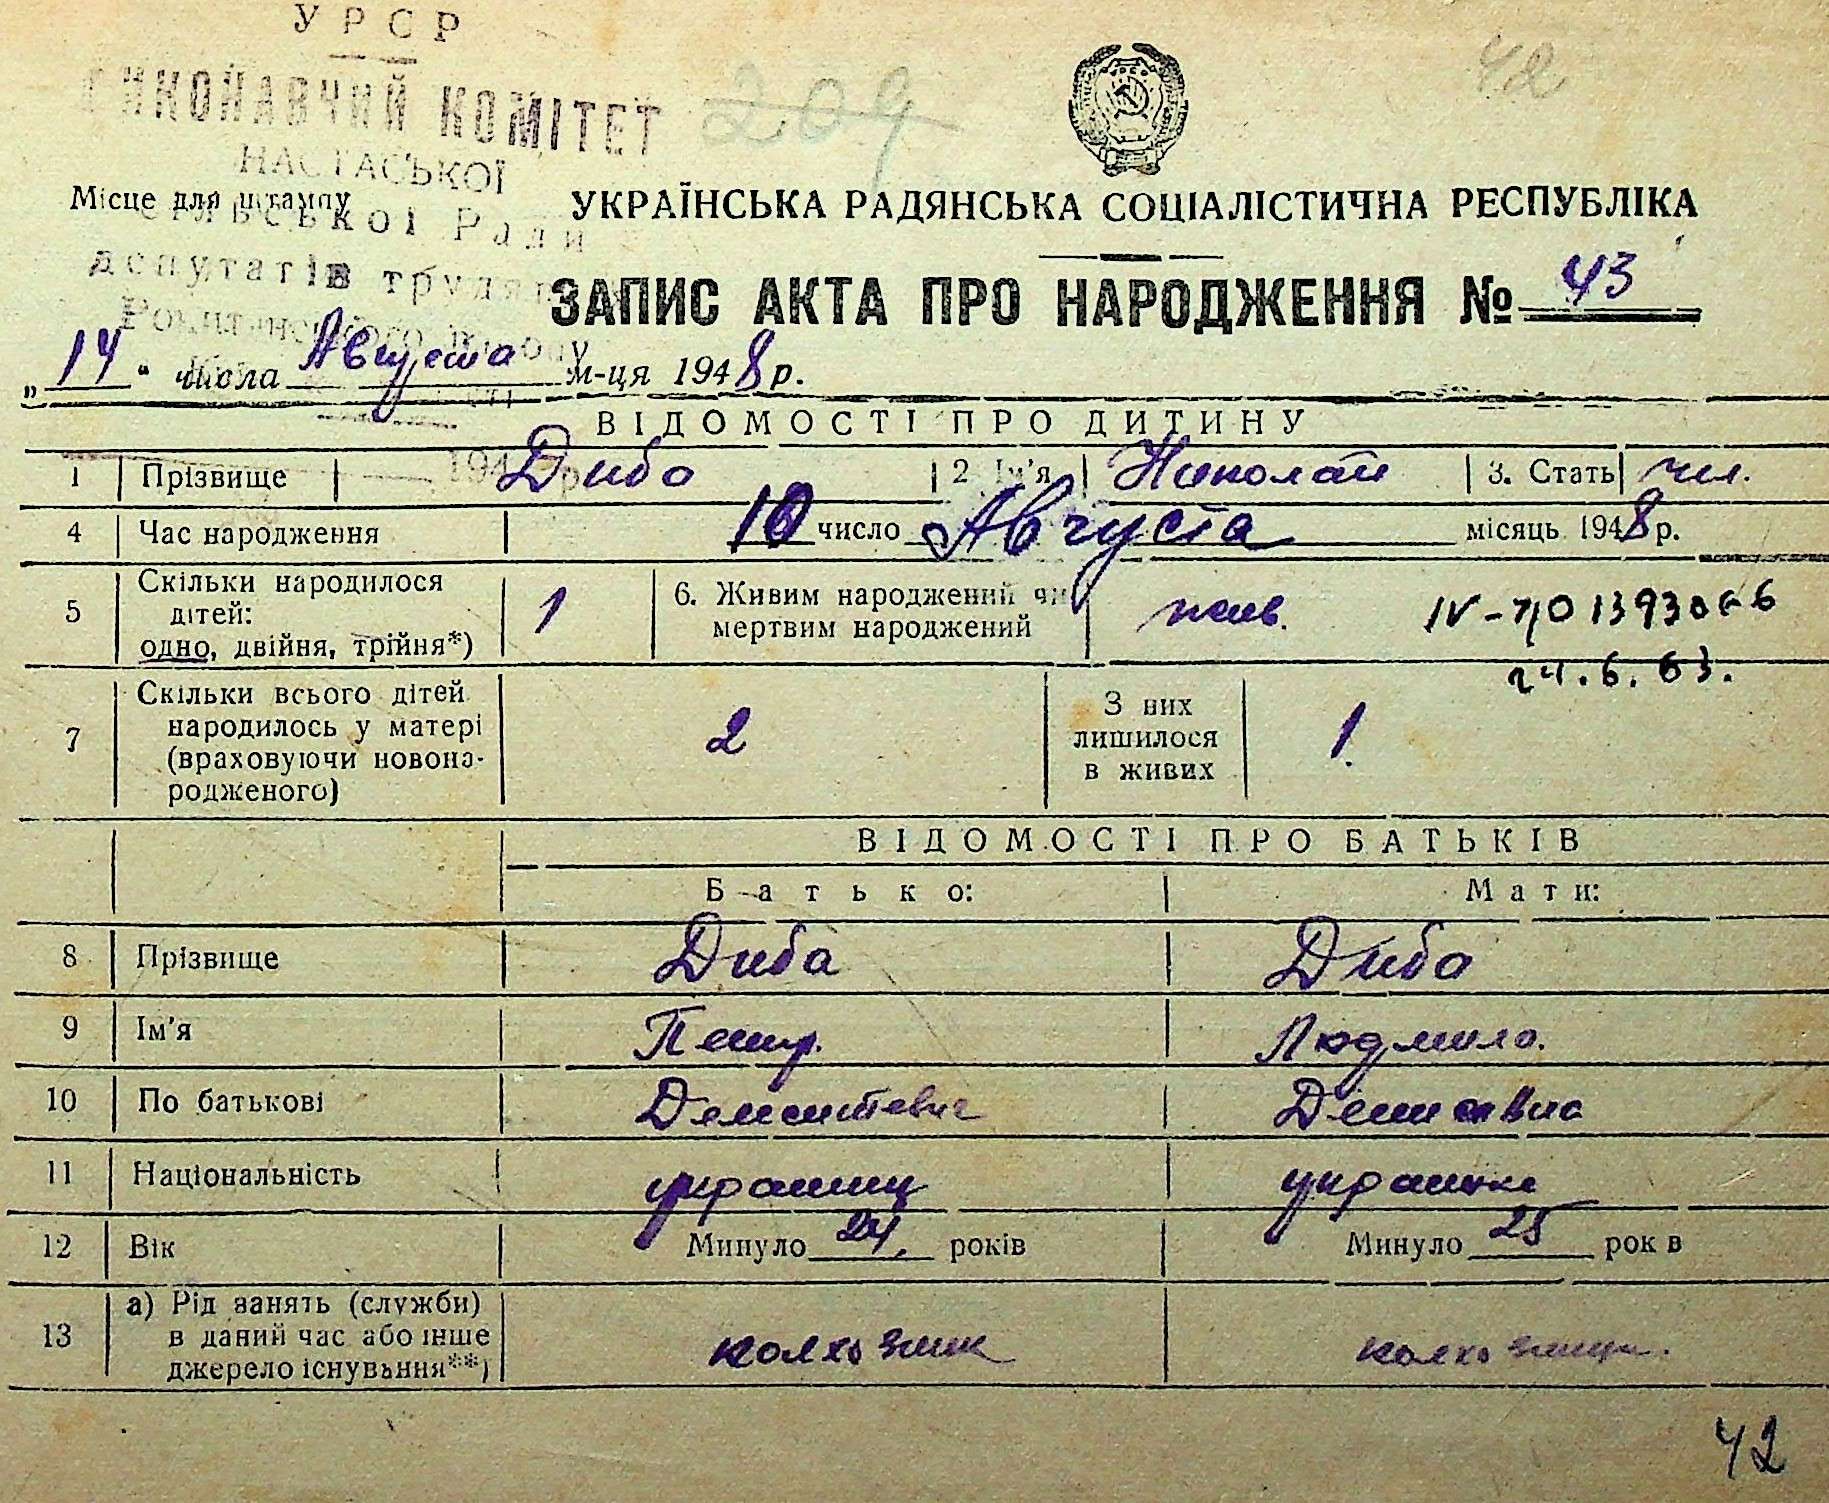 УРСР
ВИКОНАВЧИЙ КОМІТЕТ
209
42
НАСТАСЬКОЇ
Місце для штампу
сільської Ради
УКРАЇНСЬКА РАДЯНСЬКА СОЦІАЛІСТИЧНА РЕСПУБЛІКА
депутатів
ЗАПИС АКТА ПРО НАРОДЖЕННЯ № 43
„14" числа Августа м-ця 1948 р.
ВІДОМОСТІ ПРО ДИТИНУ
1 Прізвище Диба 2. Ім'я Николай 3. Стать чл.
4 Час народження 10 число Августа місяць 1948 р.
5 Скільки народилося дітей: одно, двійня, трійня*) 1 6. Живим народжений чи мертвим народжений жив.
24.6.63.
7 Скільки всього дітей народилось у матері (враховуючи новонародженого) 2 З них лишилося в живих 1.
ВІДОМОСТІ ПРО БАТЬКІВ
Батько: Мати:
8 Прізвище Диба Диба
9 Ім'я Петр. Людмила.
10 По батькові
11 Національність украинец украинка
12 Вік Минуло 24. років Минуло 25 років
13 а) Рід занять (служби) в даний час або інше джерело існування**) колхозник колхозница.
42